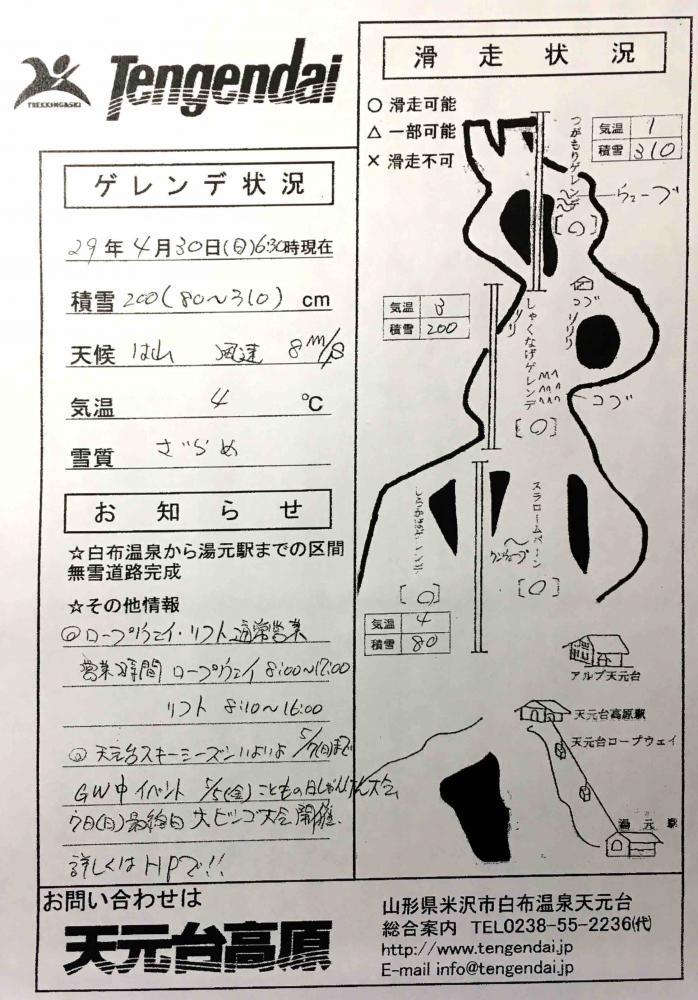 Tengendai
TREKKING&SKI
ゲレンデ状況
29年 4月 30日(日)6:30時現在
積雪 200(80～310) cm
天候 はれ 風速 8m/s
気温 4 ℃
雪質 ざらめ
お知らせ
☆白布温泉から湯元駅までの区間
無雪道路完成
☆その他情報
◎ロープウェイ・リフト通常営業
営業時間 ロープウェイ 8:00～17:00
リフト 8:10～16:00
◎天元台スキーシーズンいよいよ 5/7(日)まで
GW中イベント 5/5(金)こどもの日じゃんけん大会
7日(日)最終日 大ビンゴ大会開催.
詳しくはHPで!!
滑走状況
○ 滑走可能
△ 一部可能
× 滑走不可
気温 1
積雪 310
つがもりゲレンデ
[○]
ウェーブ
コブ
気温 3
積雪 200
しゃくなげゲレンデ
コブ
[○]
スラロームバーン
[○]
[○]
気温 4
積雪 80
アルブ天元台
天元台高原駅
天元台ロープウェイ
湯元駅
お問い合わせは
天元台高原
山形県米沢市白布温泉天元台
総合案内 TEL0238-55-2236(代)
http://www.tengendai.jp
E-mail info@tengendai.jp